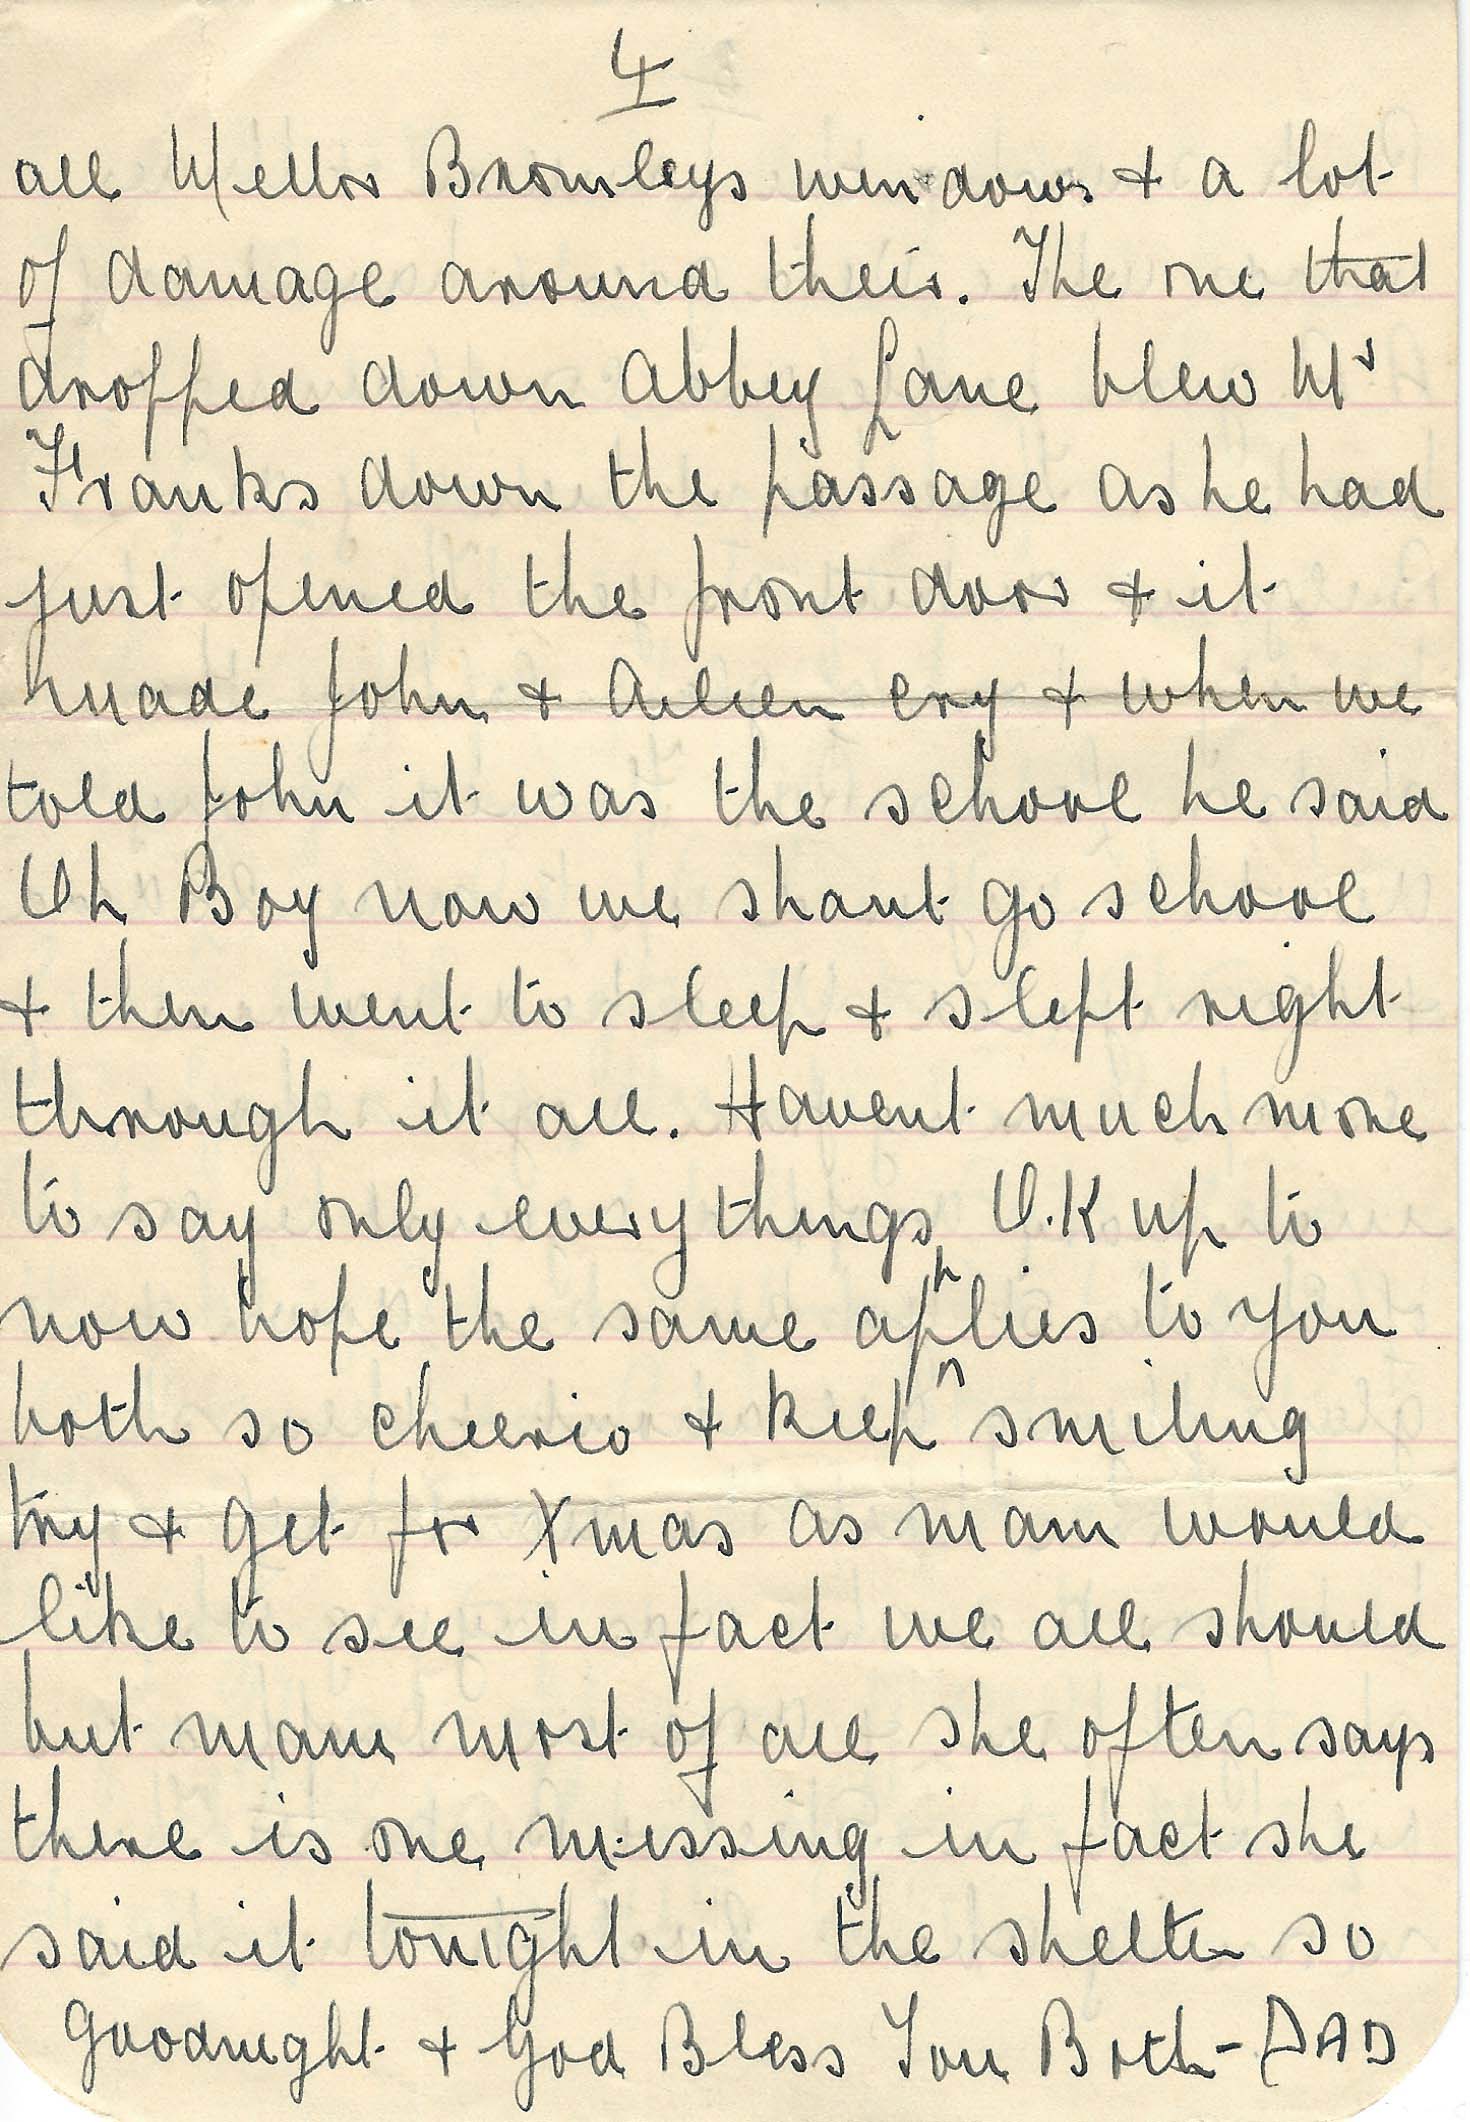 4
all Mellor Bromleys windows & a lot
of damage around their. The one that
dropped down Abbey Lane blew Mr
Franks down the passage as he had
just opened the front door & it
made John & Aileen cry & when we
told John it was the school he said
Oh Boy now we shant go school
& then went to sleep & slept right
through it all. Havent much more
to say only everythings O.K up to
now hope the same applies to you
both so cheerio & keep smiling
try & get for Xmas as mam would
like to see in fact we all should
but mam most of all she often says
there is one missing in fact she
said it tonight in the shelter so
Goodnight & God Bless You Both - DAD